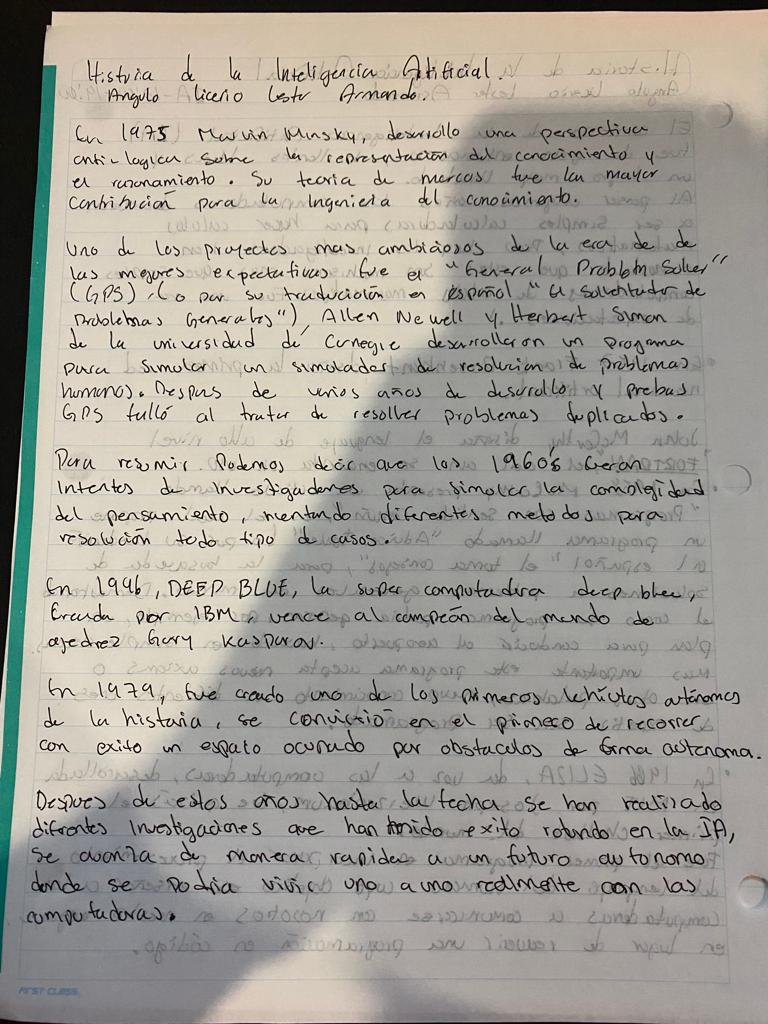 Historia de la Inteligencia Artificial.
Angulo Licerio Lester Armando.
En 1975 Marvin Minsky, desarrollo una perspectiva
anti-logica sobre la representación del conocimiento y
el razonamiento. Su teoria de marcos fue la mayor
contribucion para la Ingenieria del conocimiento.
Uno de los proyectos mas ambiciosos de la era de de
las mejores expectativas fue el "General Problem Solver"
(GPS), (o por su traducición en español "El Solucionador de
Problemas Generales"), Allen Newell y Herbert Simon
de la universidad de Carnegie desarrollaron un programa
para simular un simulador de resolucion de problemas
humanos. Despues de varios años de desarrollo y prebas
GPS falló al tratar de resolber problemas
Para resumir. Podemos decir que los 1960's eran
Intentos de Investigadores para simular la complejidad
del pensamiento, mentando diferentes metodos para
resolución todo tipo de casos.
En 1996, DEEP BLUE, la super computadora deep blue,
Creada por IBM, vence al campeón del mundo de
ajedrez Gary Kasparov.
En 1979, fue creado uno de los primeros vehiculos autónomos
de la historia, se convirtió en el primero de recorrer
con exito un espacio ocupado por obstaculos de forma autonoma.
Despues de estos años hasta la fecha se han realizado
diferentes Investigaciones que han tenido exito rotundo en la IA,
se avanza de manera rapida a un futuro autonomo
donde se podria vivir uno a uno realmente con las
computadoras.
FIRST CLASS